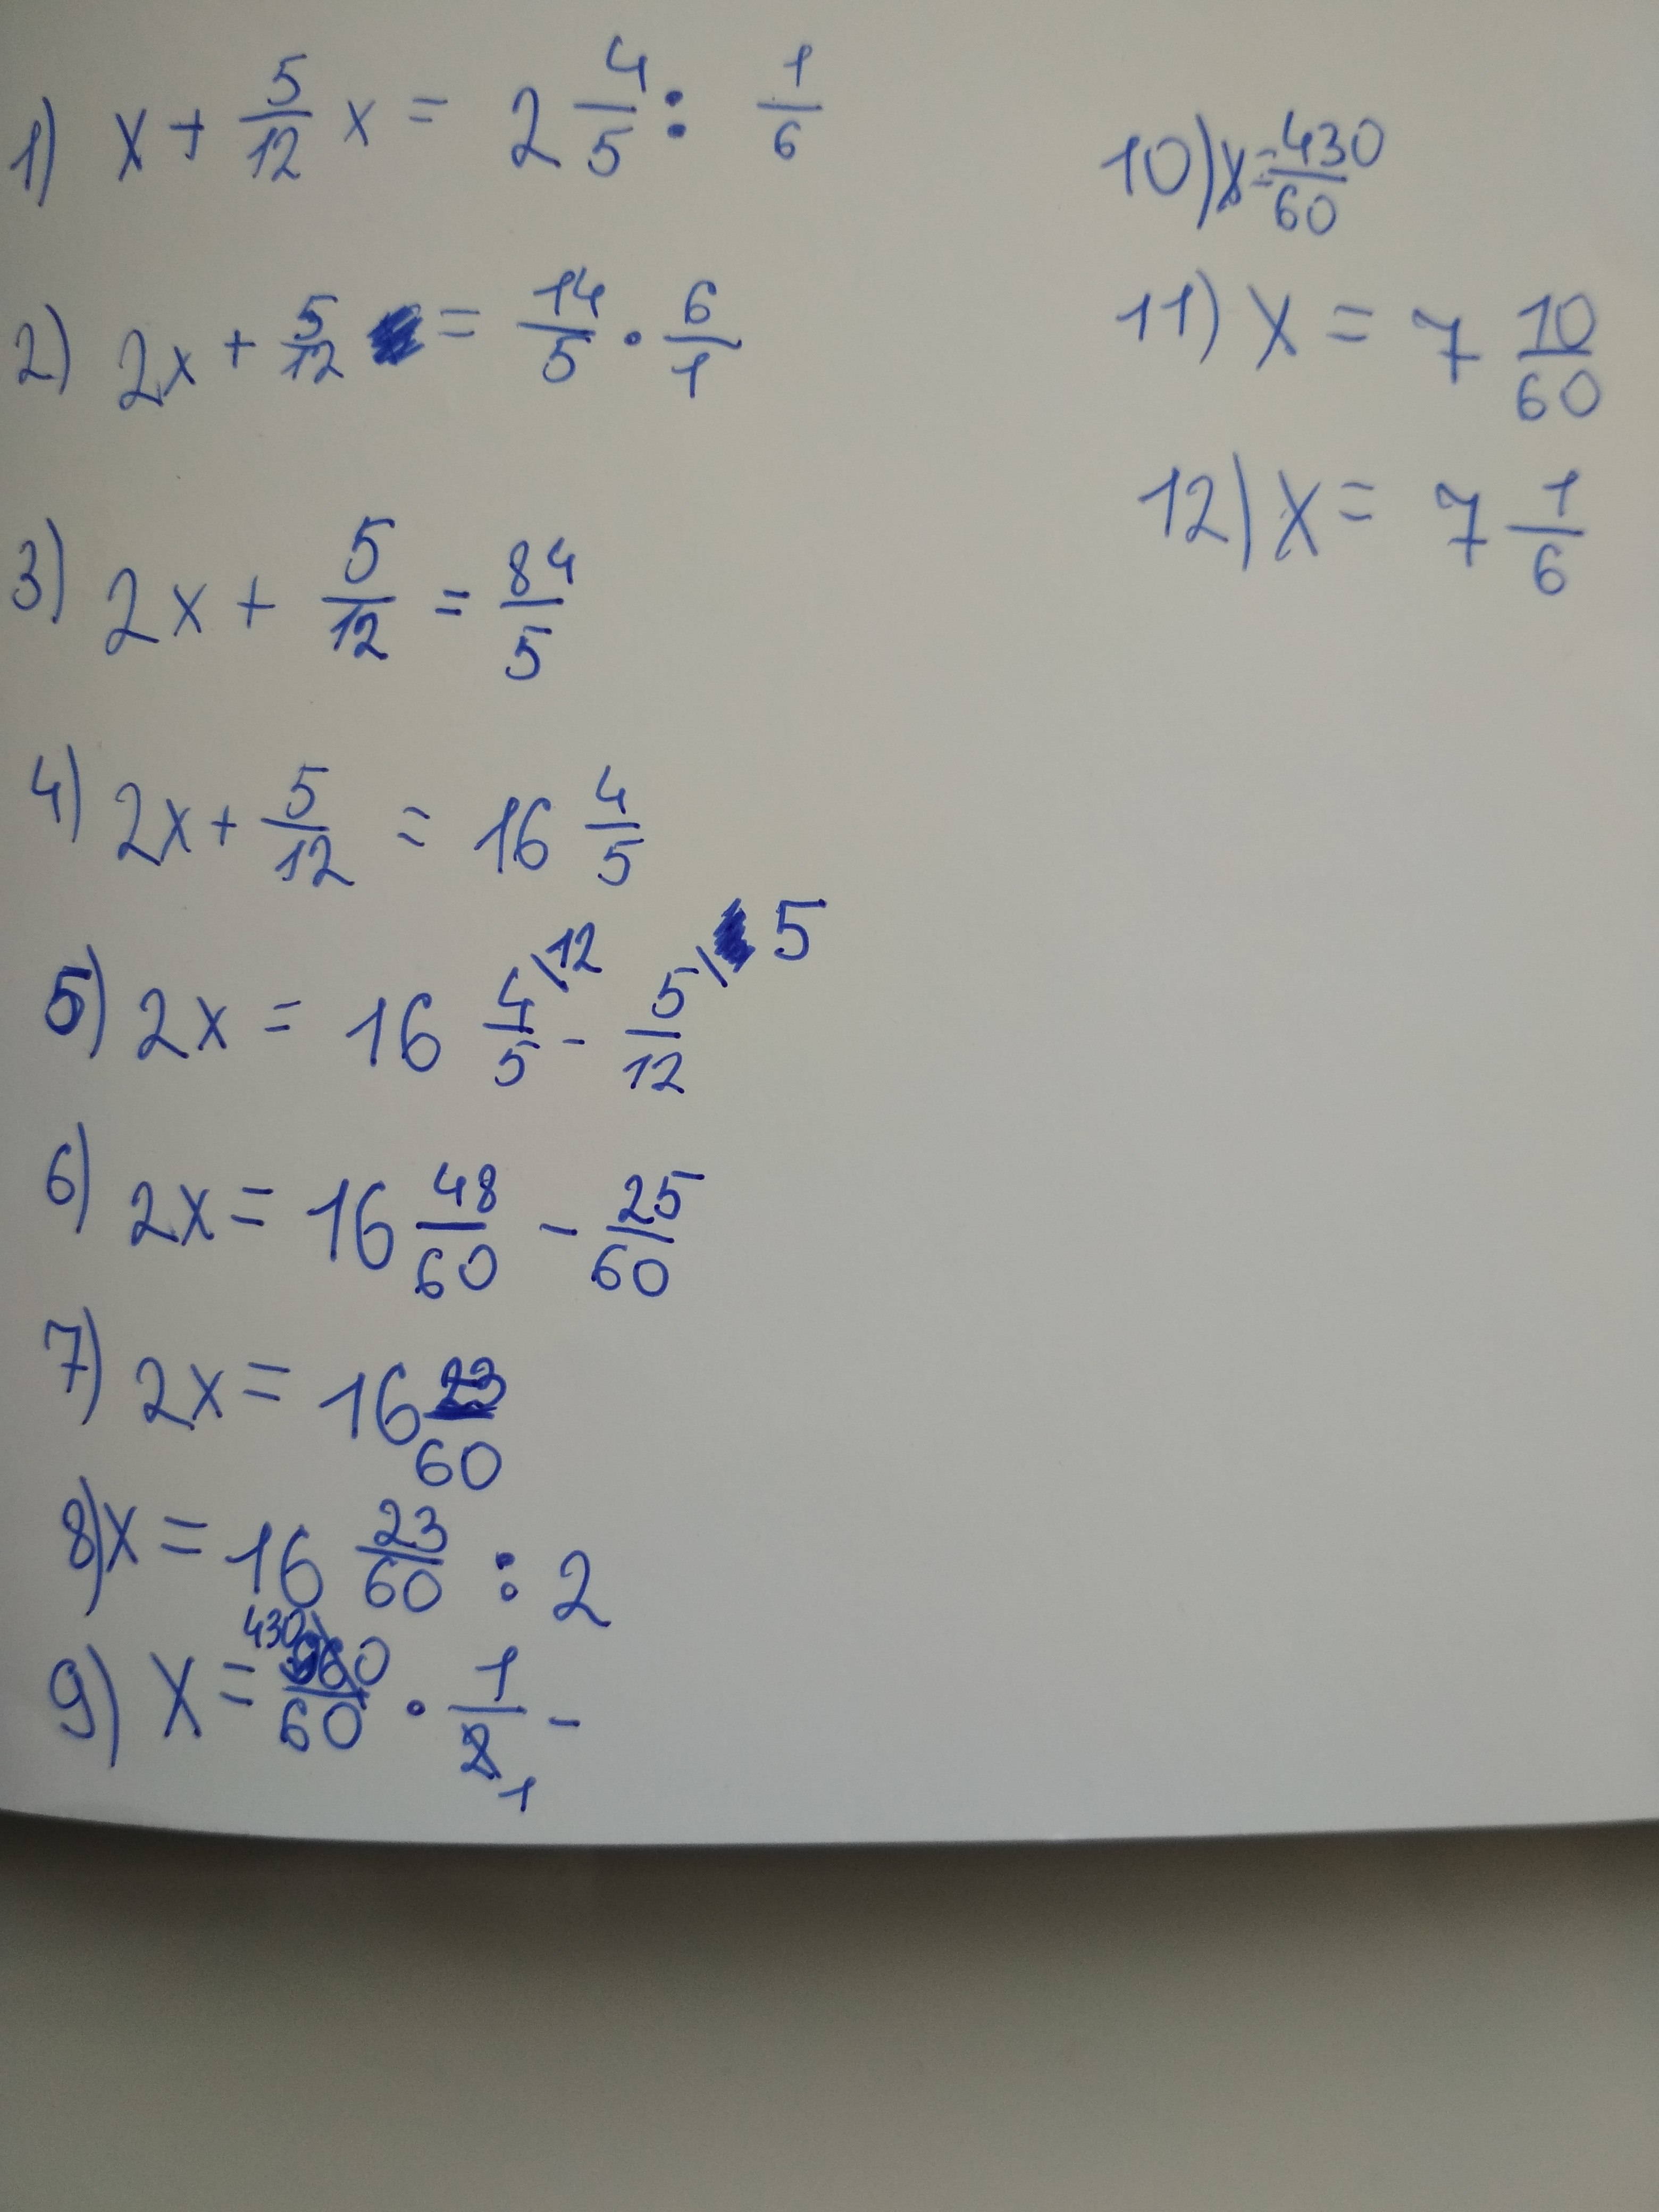 1) x + 5/12 x = 2 4/5 : 1/6
2) 2x + 5/12 = 14/5 · 6/1
3) 2x + 5/12 = 84/5
4) 2x + 5/12 = 16 4/5
5) 2x = 16 4\12/5 - 5\5/12
6) 2x = 16 48/60 - 25/60
7) 2x = 16 23/60
8) x = 16 23/60 : 2
9) x = 430 /60 · 1/2 1 -
10) x = 430/60
11) x = 7 10/60
12) x = 7 1/6